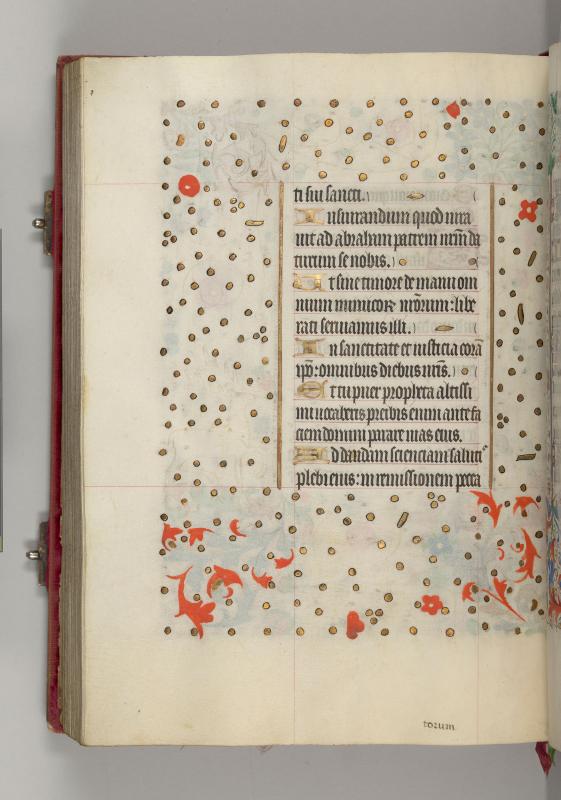 ti sui sancti.
Iusiurandum quod iura
uit ad abraham patrem nr̄m da
turum se nobis.
Ut sine timore de manu om
nium inimicoꝝ nr̄orum: libe
rati seruiamus illi.
In sanctitate et iusticia corā
ip̄o: omnibus diebus nr̄is.
Et tu puer propheta altissi
mi uocaberis preibis enim ante fa
ciem domini parare uias eius.
Ad dandam scienciam saluti
plebi eius: in remissionem pecca
torum